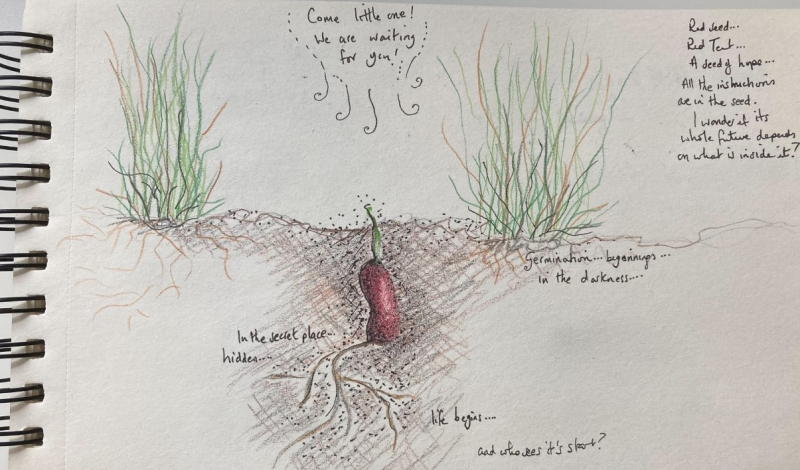 Come little one!
We are waiting
for you!
Red seed...
Red Tent...
A seed of hope...
All the instructions
are in the seed.
I wonder if its
whole future depends
on what is inside it?
Germination... beginnings...
in the darkness....
In the secret place...
hidden....
life begins....
and who sees it's start?